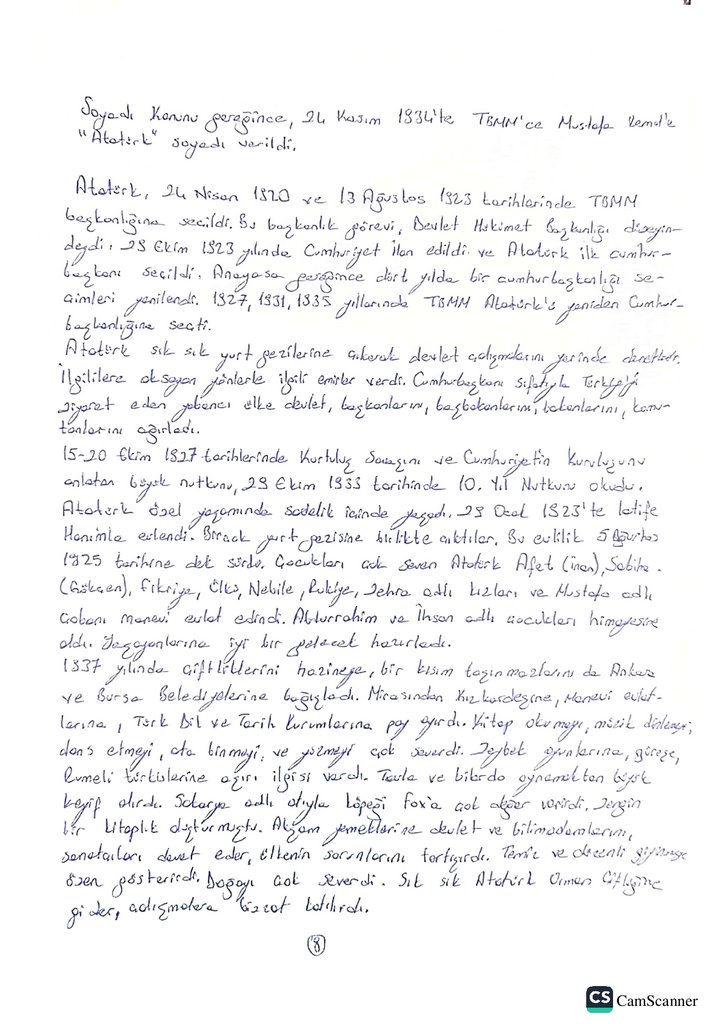 Soyadı Kanunu gereğince, 24 Kasım 1934'te TBMM'ce Mustafa Kemal'e
"Atatürk" soyadı verildi.
Atatürk, 24 Nisan 1920 ve 13 Ağustos 1923 tarihlerinde TBMM
başkanlığına seçildi. Bu başkanlık görevi, Devlet Hükümet Başkanlığı düzeyin-
deydi. 29 Ekim 1923 yılında Cumhuriyet ilan edildi. ve Atatürk ilk cumhur-
başkanı seçildi. Anayasa gereğince dört yılda bir cumhurbaşkanlığı se-
çimleri yenilendi. 1927, 1931, 1935 yıllarında TBMM Atatürk'ü yeniden Cumhur-
başkanlığına seçti.
Atatürk sık sık yurt gezilerine çıkarak devlet çalışmalarını yerinde denetledi.
İlgililere aksayan yönlerle ilgili emirler verdi. Cumhurbaşkanı sıfatıyla Türkiye'yi
ziyaret eden yabancı ülke devlet, başkanlarını, başbakanlarını, bakanlarını, komu-
tanlarını ağırladı.
15-20 Ekim 1927 tarihlerinde Kurtuluş Savaşını ve Cumhuriyet'in Kuruluşunu
anlatan büyük nutkunu, 29 Ekim 1933 tarihinde 10. Yıl Nutkunu okudu.
Atatürk özel yaşamında sadelik içinde yaşadı. 29 Ocak 1923'te latife
Hanımla evlendi. Birçok yurt gezisine birlikte çıktılar. Bu evlilik 5 Ağustos
1925 tarihine dek sürdü. Çocukları çok seven Atatürk Afet (inan), Sabiha
(Gökçen), Fikriye, Ülkü, Nebile, Rukiye, Zehra adlı kızları ve Mustafa adlı
çobanı manevi evlat edindi. Abdurrahim ve İhsan adlı çocukları himayesine
aldı. Yaşayanlarına iyi bir gelecek hazırladı.
1937 yılında çiftliklerini hazineye, bir kısım taşınmazlarını da Ankara
ve Bursa Belediyelerine bağışladı. Mirasından kızkardeşine, manevi evlat-
larına, Türk Dil ve Tarih Kurumlarına pay ayırdı. Kitap okumayı, müzik dinlemeyi,
dans etmeyi, ata binmeyi, ve yüzmeyi çok severdi. Zeybek oyunlarına, güreşe,
Rumeli türkülerine aşırı ilgisi vardı. Tavla ve bilardo oynamaktan büyük
keyif alırdı. Sakarya adlı atıyla köpeği Fox'a çok değer verirdi. Zengin
bir kitaplık oluşturmuştu. Akşam yemeklerine devlet ve bilimadamlarını,
sanatçıları davet eder, ülkenin sorunlarını tartışırdı. Temiz ve düzenli giyinmeye
özen gösterirdi. Doğayı çok severdi. Sık sık Atatürk Orman Çiftliğine
gider, çalışmalara bizzat katılırdı.
8
CS CamScanner